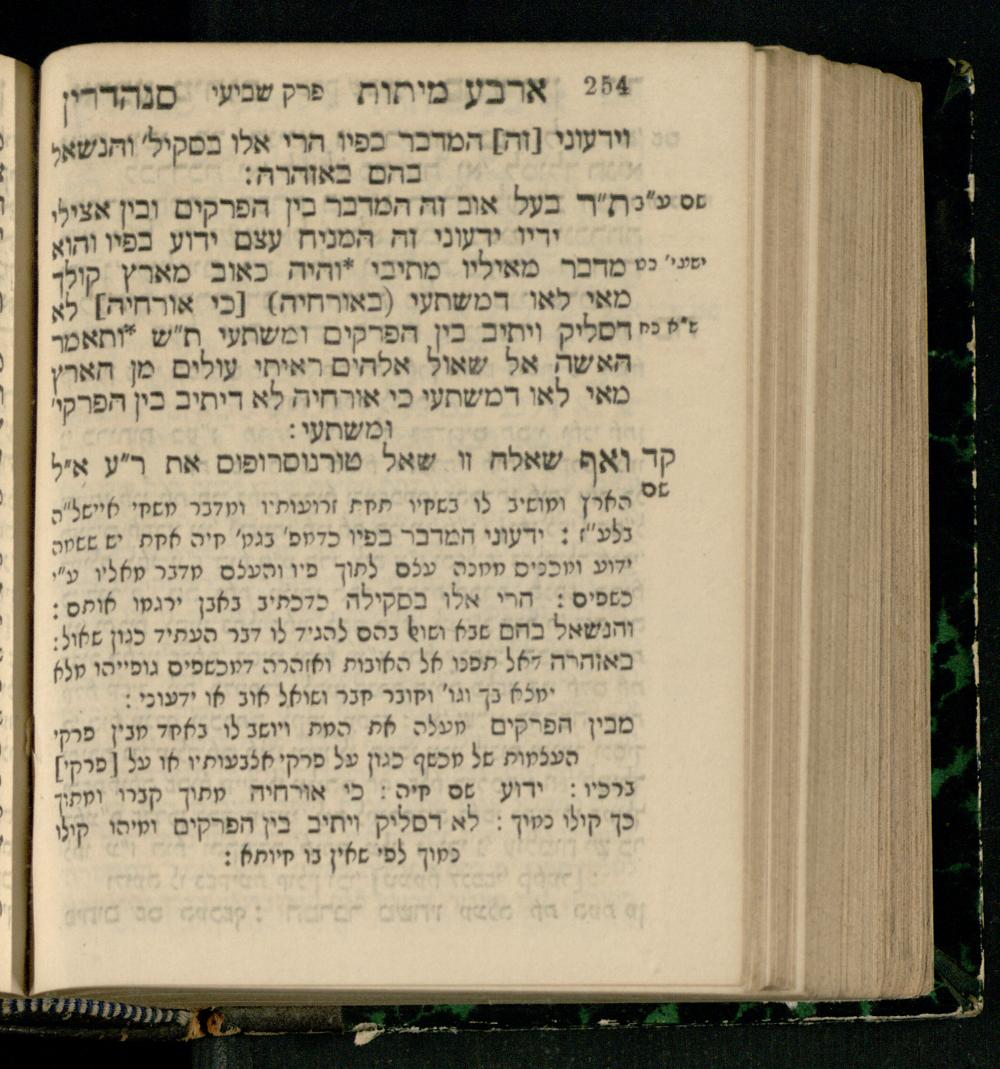 254 ארבע מיתות פרק שביעי סנהדרין
וידעוני [זה] המדבר בפיו הרי אלו בסקיל׳ והנשאל
בהם באזהרה:
שם ע״ב ת״ר בעל אוב זה המדבר בין הפרקים ובין אצילי
ידיו ידעוני זה המניח עצם ידוע בפיו והוא
ישעי׳ כט מדבר מאיליו מתיבי *והיה כאוב מארץ קולך
מאי לאו דמשתעי (באורחיה) [כי אורחיה] לא
ש״א כח דסליק ויתיב בין הפרקים ומשתעי ת״ש *ותאמר
האשה אל שאול אלהים ראיתי עולים מן הארץ
מאי לאו דמשתעי כי אורחיה לא דיתיב בין הפרקי׳
ומשתעי:
קד ואף שאלה זו שאל טורנוסרופוס את ר״ע א״ל
שם
הארץ ומושיב לו בשחיו תחת זרועותיו ומדבר משחי איישל״ה
בלע״ז : ידעוני המדבר בפיו כדמפ׳ בגמ׳ חיה אחת יש ששמה
ידוע ומכניס ממנה עצם לתוך פיו והעצם מדבר מאליו ע״י
כשפים : הרי אלו בסקילה כדכתיב באבן ירגמו אותם :
והנשאל בהם שבא ושואל בהם להגיד לו דבר העתיד כגון שאול:
באזהרה דאל תפנו אל האובות ואזהרה דמכשפים גופייהו מלא
ימצא בך וגו׳ וחובר חבר ושואל אוב או ידעוני :
מבין הפרקים מעלה את המת ויושב לו באחד מבין פרקי
העצמות של מכשף כגון על פרקי אצבעותיו או על [פרקי]
ברכיו : ידוע שם חיה : כי אורחיה מתוך קברו ומתוך
כך קולו נמוך : לא דסליק ויתיב בין הפרקים ומיהו קולו
נמוך לפי שאין בו חיותא :